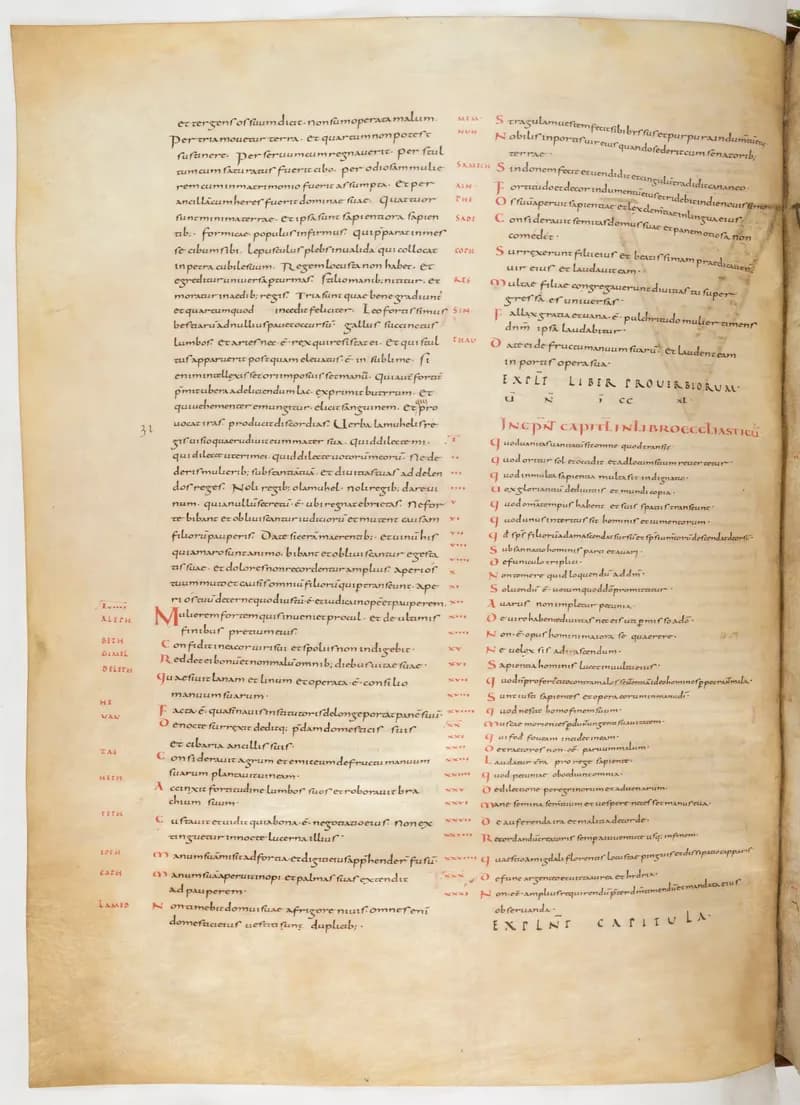 et tergens os suum dicit. non sum operata malum.
Per tria movetur terra. et quartum non potest
sustinere. Per servum cum regnaverit. per stul
tum cum saturatus fuerit cibo. per odiosam mulie
rem cum in matrimonio fuerit assumpta. Et per
ancillam cum heres fuerit dominae suae. Quattuor
sunt minima terrae. et ipsa sunt sapientiora sapien
tib; formicae populus infirmus. qui p̄parat in mes
se cibum sibi. Lepusculus plebs invalida qui collocat
in petra cubile suum. Regem locusta non habet. et
egreditur universa p turmas. stelio manib; nititur. et
moratur in aedib; regis. Tria sunt quae bene gradiunt
et quartum quod incedit feliciter. Leo fortissimus
bestiarū ad nullius pavebit occursū. gallus succinctus
lumbos. Et aries nec ē rex qui resistat ei. Et qui stul
tus apparuit postquam elevatus ē in sublime. si
enim intellexisset ori imposuisset manū. Qui autē fortit
p̄mit ubera ad eliciendum lac. exprimit butyrum. Et
qui vehementer emungitur. elicit sanguinem. Et qui pro
31
vocat iras producit discordias. Verba lamuhelis re
gis visio qua erudivit eum mater sua. Quid dilecte mi.
quid dilecte uteri mei. quid dilecte votorum meorū. Ne de
deris mulierib; substantiā tuā. et divitias tuas ad delen
dos reges. Noli regib; o lamuhel. noli regib; dare vi
num. quia nullū secretū ē ubi regnat ebrietas. Ne for
te bibant et obliviscantur iudiciorū et mutent causam
filiorū pauperis. Date siceram maerentib; et vinū his
qui amaro sunt animo. bibant et obliviscantur egesta
tis suae. et doloris non recordentur amplius. Aperi os
tuum muto et causis omniū filiorū qui pertranseunt. Ape
ri os tuū decerne quod iustū ē et iudica inopē et pauperem.
ALEPH Mulierem fortem quis inveniet procul. et de ultimis
finibus pretium eius.
BETH Confidit in ea cor viri sui et spoliis non indigebit.
GIMEL Reddet ei bonū et non malū omnib; diebus vitae suae.
DELETH Quaesivit lanam et linum et operata ē consilio
manuum suarum.
HE Facta ē quasi navis institoris de longe portat panē suū.
VAV De nocte surrexit deditq; p̄dam domesticis suis
et cibaria ancillis suis.
ZAI Consideravit agrum et emit eum de fructu manuum
suarum plantavit vineam.
HETH Accinxit fortitudine lumbos suos et roboravit bra
chium suum.
TETH Gustavit et vidit quia bona ē negotiatio eius. Non ex
tinguetur in nocte lucerna illius.
IOTH Manum suā misit ad fortia. et digiti eius appˢhender fusū.
CAPH Manum suā aperuit inopi. et palmas suas extendit
ad pauperem.
LAMED Non timebit domui suae a frigore nivis. omnes enī
domestici eius vestiti sunt duplicib;.
MEM Stragulam vestem fecit sibi byssus et purpura indumtū eius
NUN Nobilis in portis vir eius quando sederit cum senatorib;
terrae.
SAMECH Sindonem fecit et vendidit et cingulū tradidit cananeo.
AIN Fortitudo et decor indumentū eius et ridebit in die novissimo
PHE Os suū aperuit sapientiae et lex clementiae in lingua eius.
SADE Consideravit semitas domus suae et panem otiosa non
comedet.
COPH Surrexerunt filii eius et beatissimam praedicaverunt
vir eius et laudavit eam.
RES Multae filiae congregaverunt divitias tu super
gressa es universas.
SIN Fallax gratia et vana ē pulchritudo mulier timens
dn̄m ipsa laudabitur.
THAU Date ei de fructu manuum suarū et laudent eam
in portis opera sua.
EXPLT LIBER PROVERBIORUM.
INCPNT CAPITL IN LIBRO ECCLIASTICU
I Quod vanitas vanitatū sit omne quod transit.
II Quod oritur sol et occidit et ad locum suum revertetur.
III Quod in multa sapientia multa sit indignatio.
IIII Vox gloriantiū divitiis et mundi copia.
V Quod omā tempus habent et suis spatiis transeunt.
VI Quod unus interitus sit hominis et iumentorum.
VII Qd spˢ filiorū adam ascendat sursū et spˢ iumtorū descendat deorsū.
VIII Subsannatio hominis parci et avari.
VIIII De funiculo triplici.
X Non temere quid loquendū ad dm̄.
XI Solvendū ē votum quod dō promittitur.
XII Avarus non impletur pecunia.
XIII De viro habente divitias nec eis uti p missō a dō.
XIIII Non ē opus homini maiora se quaerere.
XV Ne velox sis ad irascendum.
XVI Sapientia hominis lucet in vultu eius.
XVIII Sunt iusti sapientes et opera eorum in manu dī.
XVIIII Quod nescit homo finem suum.
XX Muscae morientes pdunt ungenti suavitatem.
XXI Qui fodit foveam incidet in eam.
XXII Detractores non ee parvum malum.
XXIII Laudatur terra pro rege sapiente.
XXIIII Quod pecuniae oboediunt omnia.
XXV De dilectione peregrinorum et advenarum.
XXVI Mane semina semen tuum et vespere ne cesset manus tua.
XXVII De auferenda ira et malitia de corde.
XXVIII Recordandū creatoris semp a iuventute usq; in finem.
XXVIIII Quasi to amigdali florentis locustae pinguis et dissipatio capparis
XXX De fune argenteo et vitta aurea et hydria.
XXXI Non ēē amplius requirendū pˢter dī timendū et mandata eius
observanda.
EXPLNT CAPITULA.